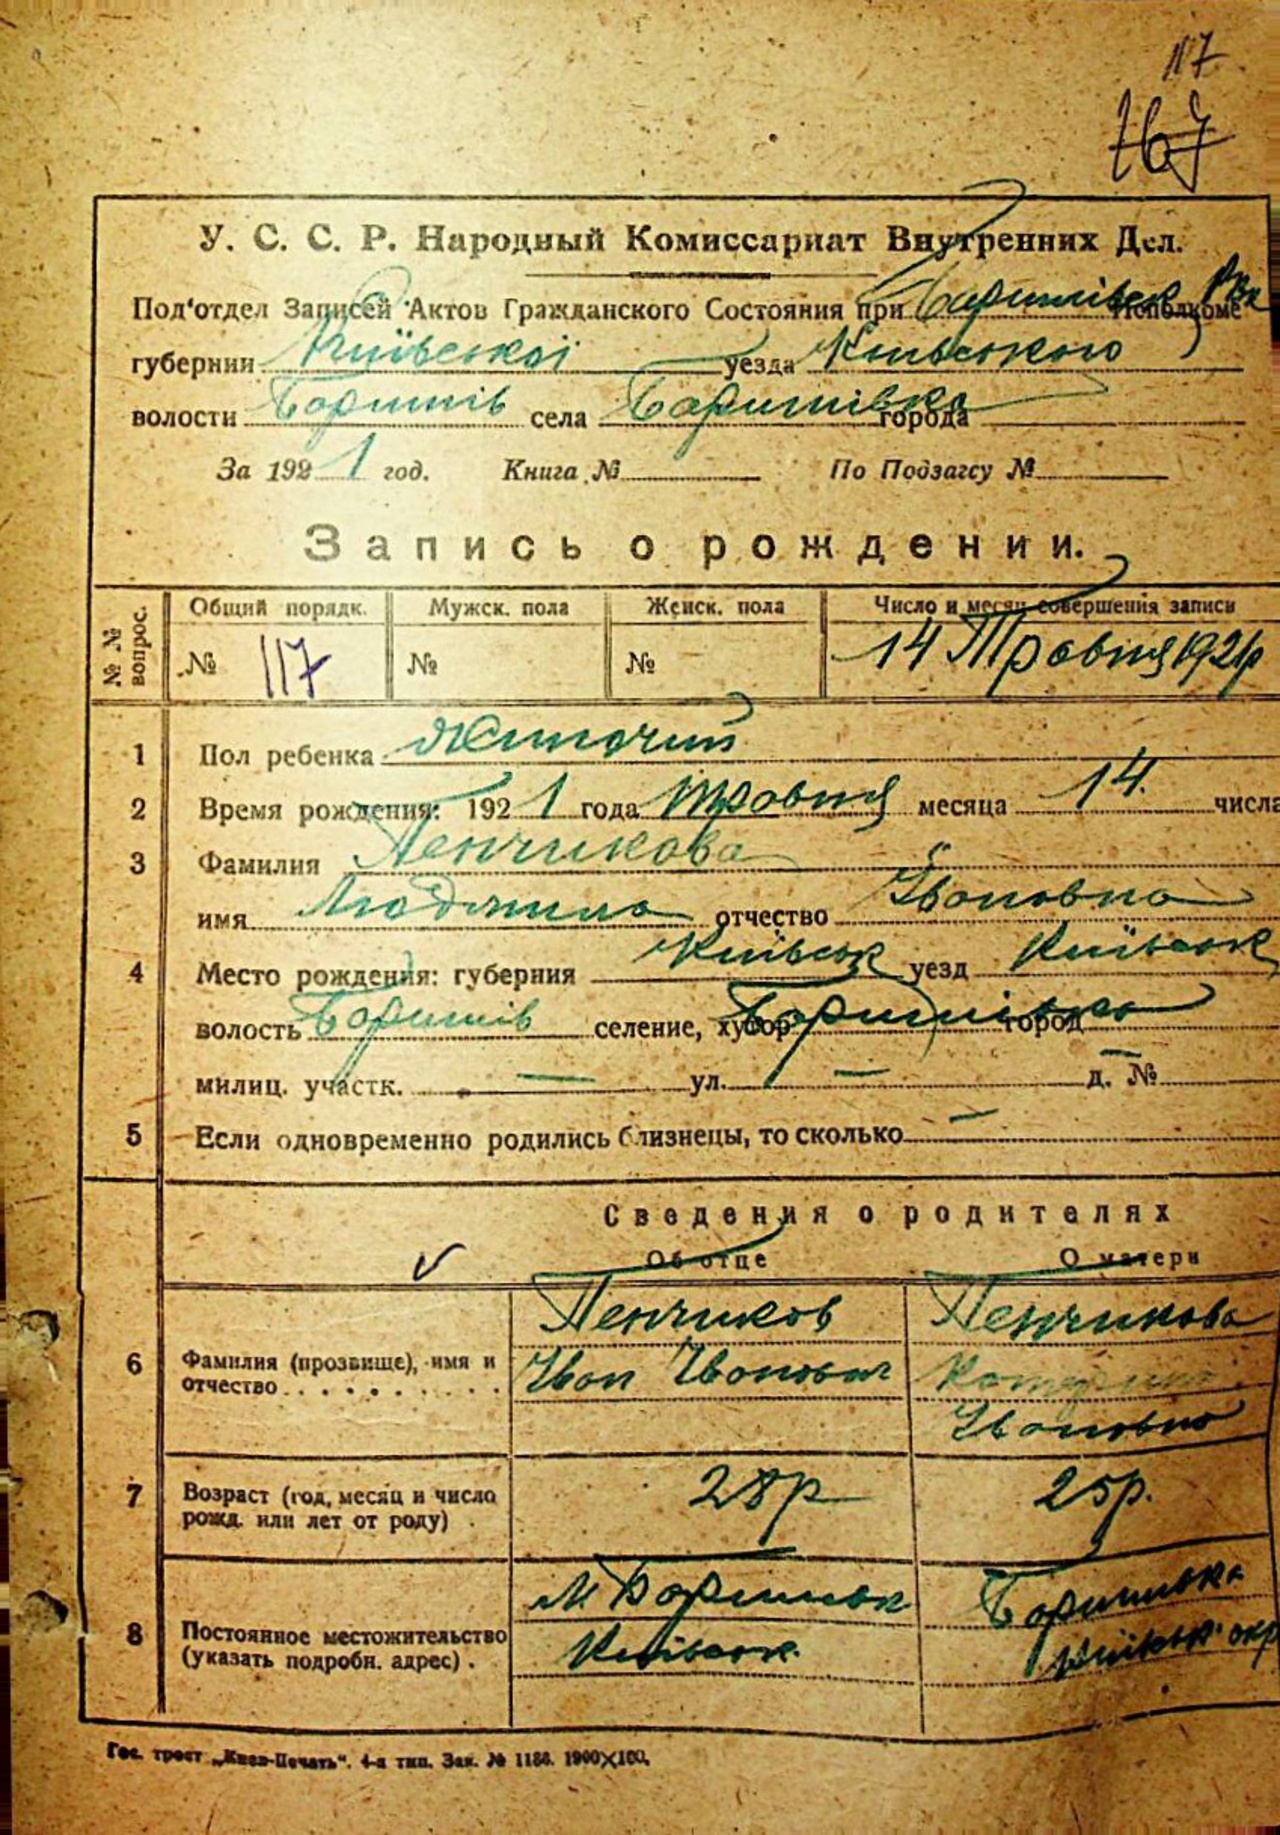 117
167
У. С. С. Р. Народный Комиссариат Внутренних Дел.
Под'отдел Записей Актов Гражданского Состояния при Баришівськ Исполкоме
губернии Київської уезда Київського
волости Баришів села Баришівка города
За 1921 год. Книга № По Подзагсу №
Запись о рождении.
№ № вопрос. Общий порядк. Мужск. пола Женск. пола Число и месяц совершения записи
№ 117 № № 14 Травня 1921р
1 Пол ребенка Жиночий
2 Время рождения: 1921 года травня месяца 14. числа
3 Фамилия Пенчикова
имя Людмила отчество Ивановна
4 Место рождения: губерния Київськ уезд Київськ
волость Баришів селение, хутор Баришівка город
милиц. участк. — ул. — д. № —
5 Если одновременно родились близнецы, то сколько —
Сведения о родителях
Об отце О матери
Пенчиков Пенчикова
6 Фамилия (прозвище), имя и отчество Иван Иванович Катерина
Ивановна
7 Возраст (год, месяц и число рожд. или лет от роду) 28р 25р.
8 Постоянное местожительство (указать подробн. адрес). М Баришівк Баришівка
Київськ. Київськ. окр
Гос. трест „Киев-Печать". 4-я тип. Зак. № 1186. 1900×100.